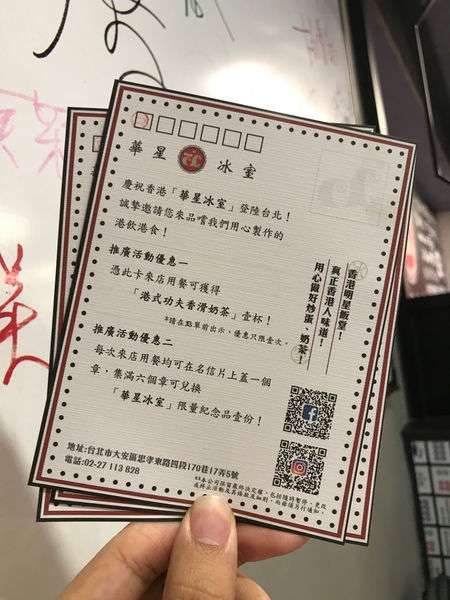 華星 冰室
慶祝香港「華星冰室」登陸台北！
誠摯邀請您來品嚐我們用心製作的
港飲港食！
推廣活動優惠一
憑此卡來店用餐可獲得
「港式功夫香滑奶茶」壹杯！
*請在點單前出示，優惠只限壹次。
推廣活動優惠二
每次來店用餐均可在名信片上蓋一個
章，集滿六個章可兌換
「華星冰室」限量紀念品壹份！
香港明星飯堂！
真正香港人味道！
用心做好炒蛋、奶茶！
地址:台北市大安區忠孝東路四段170巷17弄5號
電話:02-27 113 828
**本公司保留最終決定權，包括隨時暫停、更改
或終止活動及其條款及細則，而毋須另行通知。